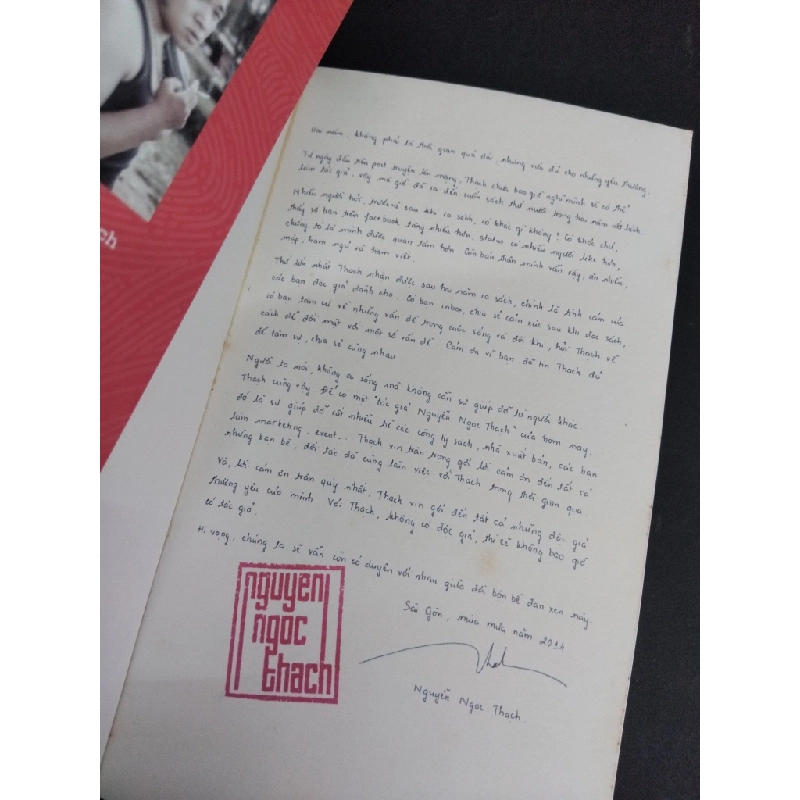 ch
Hai năm, không phải là thời gian quá dài, nhưng vừa đủ cho những yêu thương.
Từ ngày đầu tiên post truyện lên mạng, Thạch chưa bao giờ nghĩ mình sẽ có thể
làm tác giả, vậy mà giờ đã ra đến cuốn sách thứ mười trong hai năm
Nhiều người hỏi, trước và sau khi ra sách, có khác gì không? Có khác chứ,
thấy số bạn trên facebook tăng nhiều hơn, status có nhiều người like hơn,
chứng tỏ là mình được quan tâm hơn. Còn bản thân mình vẫn vậy, ăn nhiều,
mập, ham ngủ và ham viết.
Thứ lớn nhất Thạch nhận được sau hai năm ra sách, chính là tình cảm của
các bạn độc giả dành cho. Có bạn inbox, chia sẻ cảm xúc sau khi đọc sách,
có bạn tâm sự về những vấn đề trong cuộc sống và đôi khi, hỏi Thạch về
cách để đối mặt với một số vấn đề. Cảm ơn vì bạn đã tin Thạch đủ
để tâm sự, chia sẻ cùng nhau.
Người ta nói, không ai sống mà không cần sự giúp đỡ từ người khác.
Thạch cũng vậy. Để có một "tác giả Nguyễn Ngọc Thạch" của hôm nay,
đó là sự giúp đỡ rất nhiều từ các công ty sách, nhà xuất bản, các bạn
làm marketing, event... Thạch xin trân trọng gởi lời cảm ơn đến tất cả
những bạn bè, đối tác đã cùng làm việc với Thạch trong thời gian qua.
Và, lời cảm ơn trân quý nhất, Thạch xin gởi đến tất cả những độc giả
thương yêu của mình. Với Thạch, không có độc giả, thì sẽ không bao giờ
có tác giả.
Hi vọng, chúng ta sẽ vẫn còn có duyên với nhau giữa đời bốn bề đan xen này.
Sài Gòn, mùa mưa năm 2014
nguyen
ngoc
thach
Nguyễn Ngọc Thạch